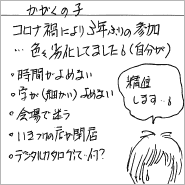 かがくの子
コロナ禍により3年ぶりの参加
…色々劣化してました6(自分が)
・時間がよめない
・字が(細かい)よめない
・会場で迷う
・いきつけの店が閉店
・デジタルカタログって何?
精進
します…6